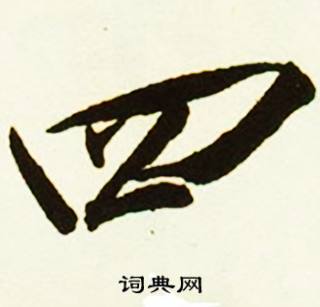 四
词典网